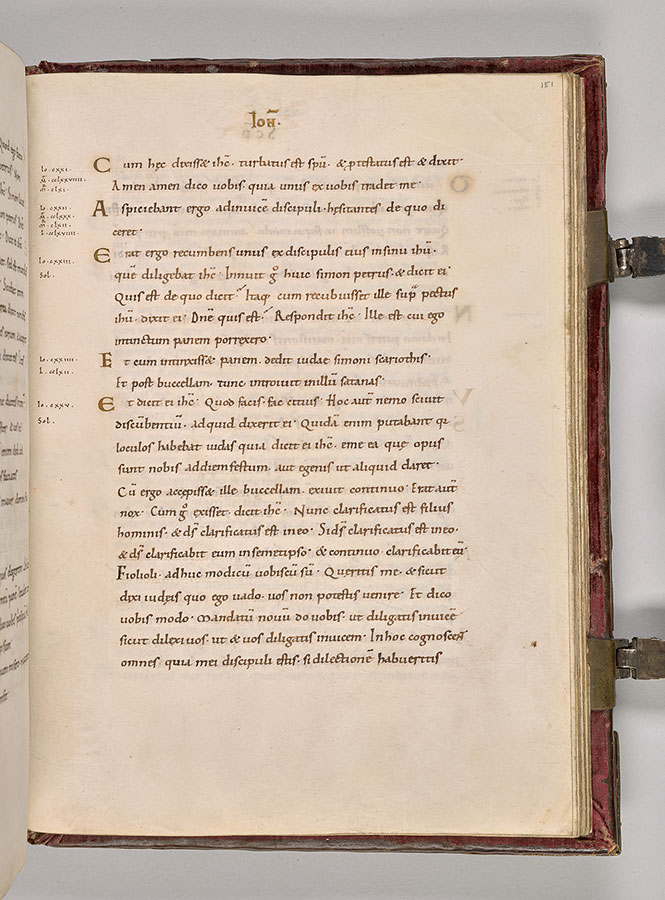 151
Ioh̄.
Io. cxxi.
m̄. clxi.
Cum hęc dixisset ihc̄. turbatus est spū. & ptestatus est & dixit.
Amen amen dico uobis quia unus ex uobis tradet me.
Io. cxxii.
l. cclxviiii.
Aspiciebant ergo adinuicē discipuli. hesitantes de quo di
ceret.
Io. cxxiii.
Sol.
Erat ergo recumbens unus ex discipulis eius insinu ihū.
quē diligebat ihc̄. Innuit g̊ huic simon petrus. & dicit ei.
Quis est de quo dicit. Itaq; cum recubuisset ille sup̄ pectus
ihū. dixit ei. Dn̄e quis est. Respondit ihc̄. Ille est cui ego
intinctum panem porrexero.
Io. cxxiiii.
l. cclxii.
Et cum intinxisset panem. dedit iudae simoni scariothis.
Et post buccellam. tunc introiuit inillū satanas.
Io. cxxv.
Sol.
Et dicit ei ihc̄. Quod facis. fac citius. Hoc aut̄ nemo sciuit
discūbentiū. adquid dixerit ei. Quidā enim putabant q̄
loculos habebat iudas quia dicit ei ihc̄. eme ea quę opus
sunt nobis addiemfestum. aut egenis ut aliquid daret.
Cū ergo accępisset ille buccellam. exiuit continuo. Erat aut̄
nox. Cum g̊ exisset. dicit ihc̄. Nunc clarificatus est filius
hominis. & ds̄ clarificatus est ineo. Si ds̄ clarificatus est ineo.
& ds̄ clarificabit eum insemetipso. & continuo clarificabit eū.
Fiolioli. adhuc modicū uobiscū sū. Queritis me. & sicut
dixi iudęis quo ego uado. uos non potestis uenire. Et dico
uobis modo. Mandatū nouū do uobis. ut diligatis inuicē
sicut dilexi uos. ut & uos diligatis inuicem. Inhoc cognoscent
omnes. quia mei discipuli estis. si dilectionē habueritis